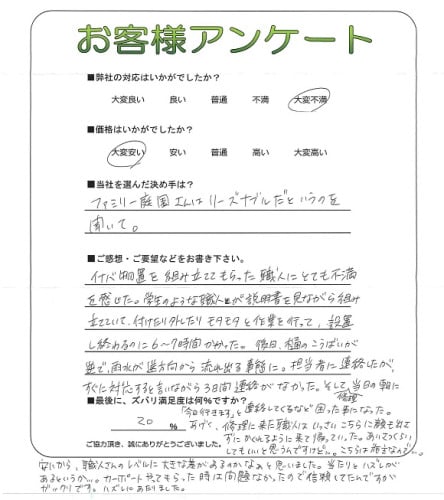 お客様アンケート
■弊社の対応はいかがでしたか？
大変良い　良い　普通　不満　大変不満
■価格はいかがでしたか？
大変安い　安い　普通　高い　大変高い
■当社を選んだ決め手は？
ファミリー庭園さんは リーズナブルだというのを
聞いて。
■ご感想・ご要望などをお書き下さい。
イナバ物置を組み立ててもらった職人にとても不満
を感じた。学生のような職人が説明書を見ながら組み
立てていて、付けたり外したりモタモタと作業を行って、設置
し終わるのに6〜7時間かかった。後日、樋のこうばいが
逆で、雨水が逆方向から流れ出る事態に。担当者に連絡したが、
すぐに対応すると言いながら3日間連絡がなかった。そして、当日の朝に
■最後に、ズバリ満足度は何%ですか？
「今日行きます」と連絡してくるなど困った事になった。
20 %
あげく、修理に来た職人はいっさいこちらに顔を出さ
ずにかくれるように来て帰っていった。あいさつくらい
ご協力頂き、誠にありがとうございました。
してもいいと思うんですけど…。こちらは
安いから、職人さんのレベルに大きな差があるのかなぁと思いました。当たりとハズレが
あるというか…。カーポートやってもらった時は問題なかったので信頼してたんですが
ガックリです。ハズレにあたりました。